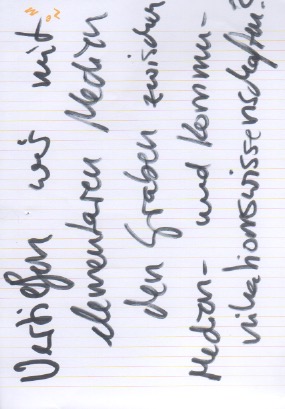 Vertiefen wir mit
elementaren Medien
den Graben zwischen
Medien- und Kommu-
nikationswissenschaften?